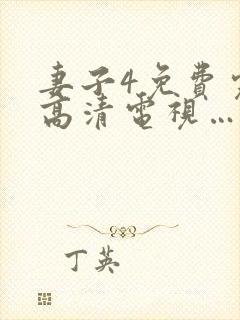 妻子4免費
高清電視...
丁英